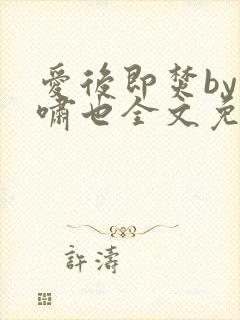 愛後即焚by
嘯也全文免
許濤